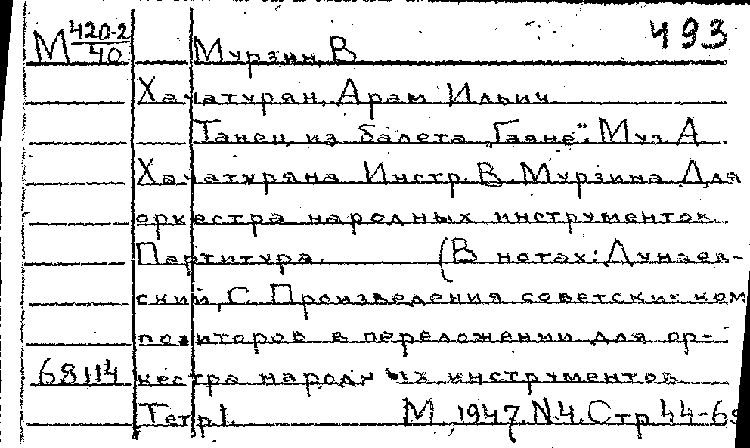 М 420-2/40 Мурзин, В 493
Хачатурян, Арам Ильич
Танец из балета "Гаяне". Муз. А
Хачатуряна Инстр. В. Мурзина Для
оркестра народных инструментов.
Партитура. (В нотах: Дунаев-
ский, С. Произведения советских ком
позиторов в переложении для ор-
68114 кестра народных инструментов
Тетр 1. М., 1947. N4. Стр 44-6